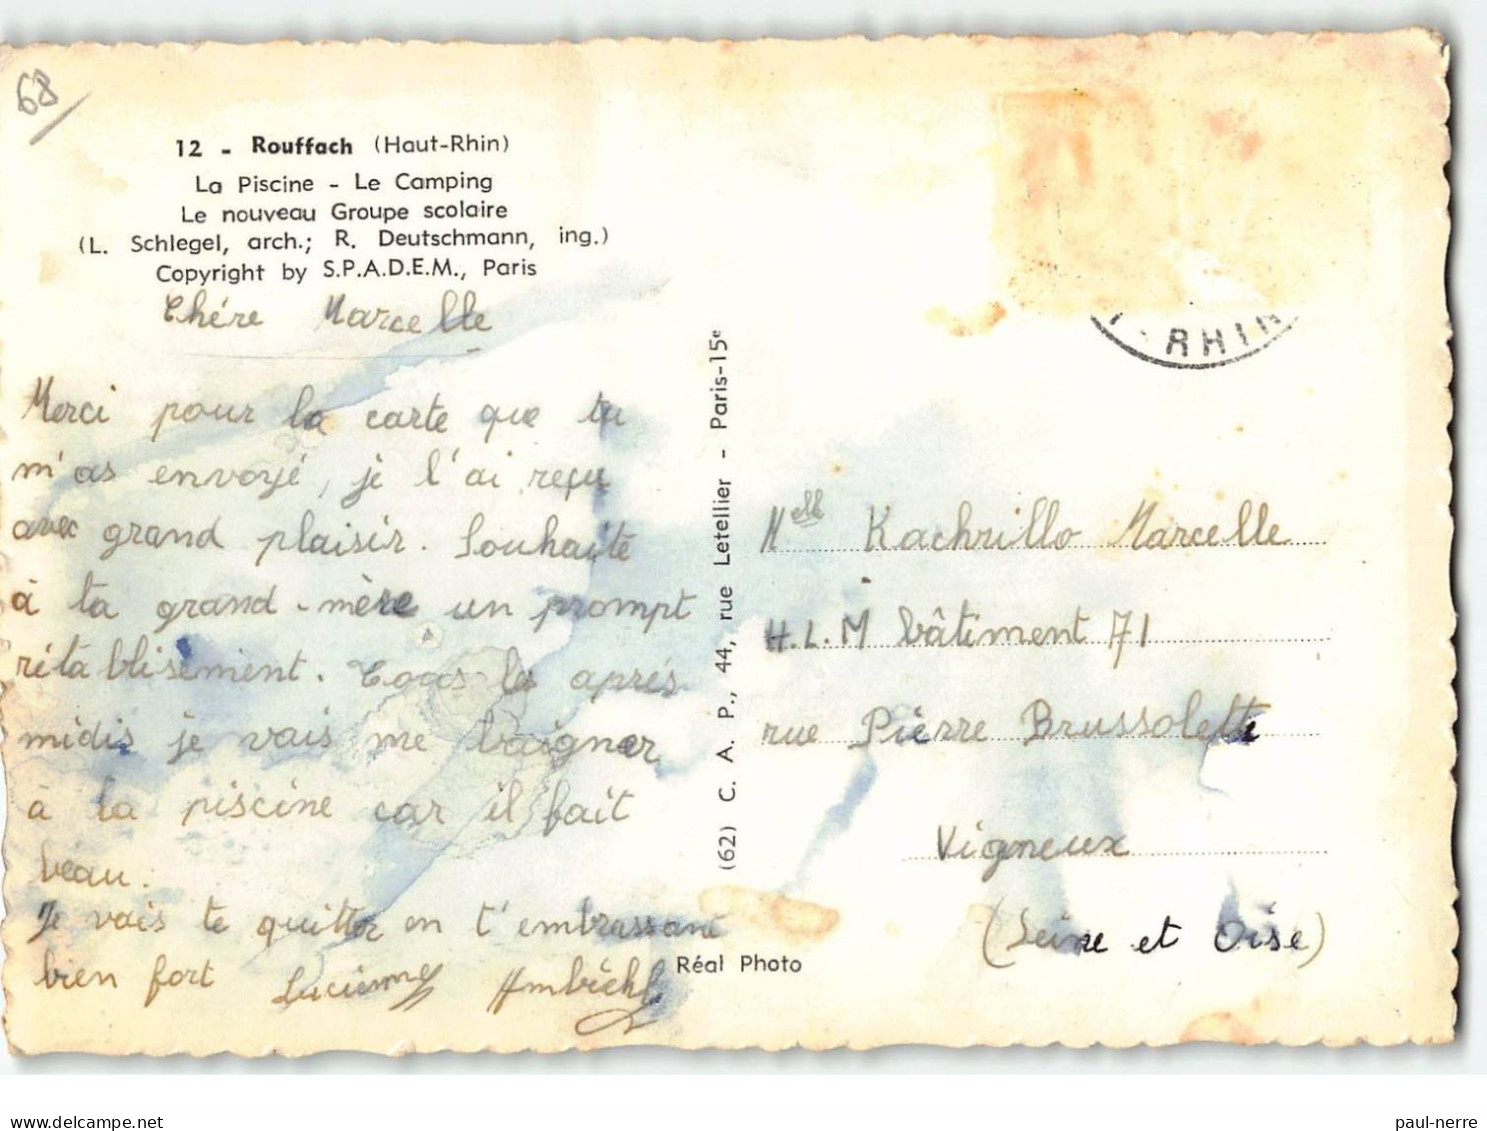 68
12 - Rouffach (Haut-Rhin)
La Piscine - Le Camping
Le nouveau Groupe scolaire
(L. Schlegel, arch.; R. Deutschmann, ing.)
Copyright by S.P.A.D.E.M., Paris
Chére Marcelle
Merci pour la carte que tu
m'as envoyé, je l'ai reçu
avec grand plaisir. Souhaite
à ta grand-mère un prompt
rétablisement. Tous les aprés
midis je vais me baigner
à la piscine car il fait
beau.
Je vais te quitter en t'embrassant
bien fort
(62) C. A. P., 44, rue Letellier - Paris-15e
Réal Photo
RHIN
Melle Kachrillo Marcelle
H.L.M bâtiment 71
rue Pierre Brussolette
Vigneux
(Seine et Oise)
paul-nerre
delcampe.net